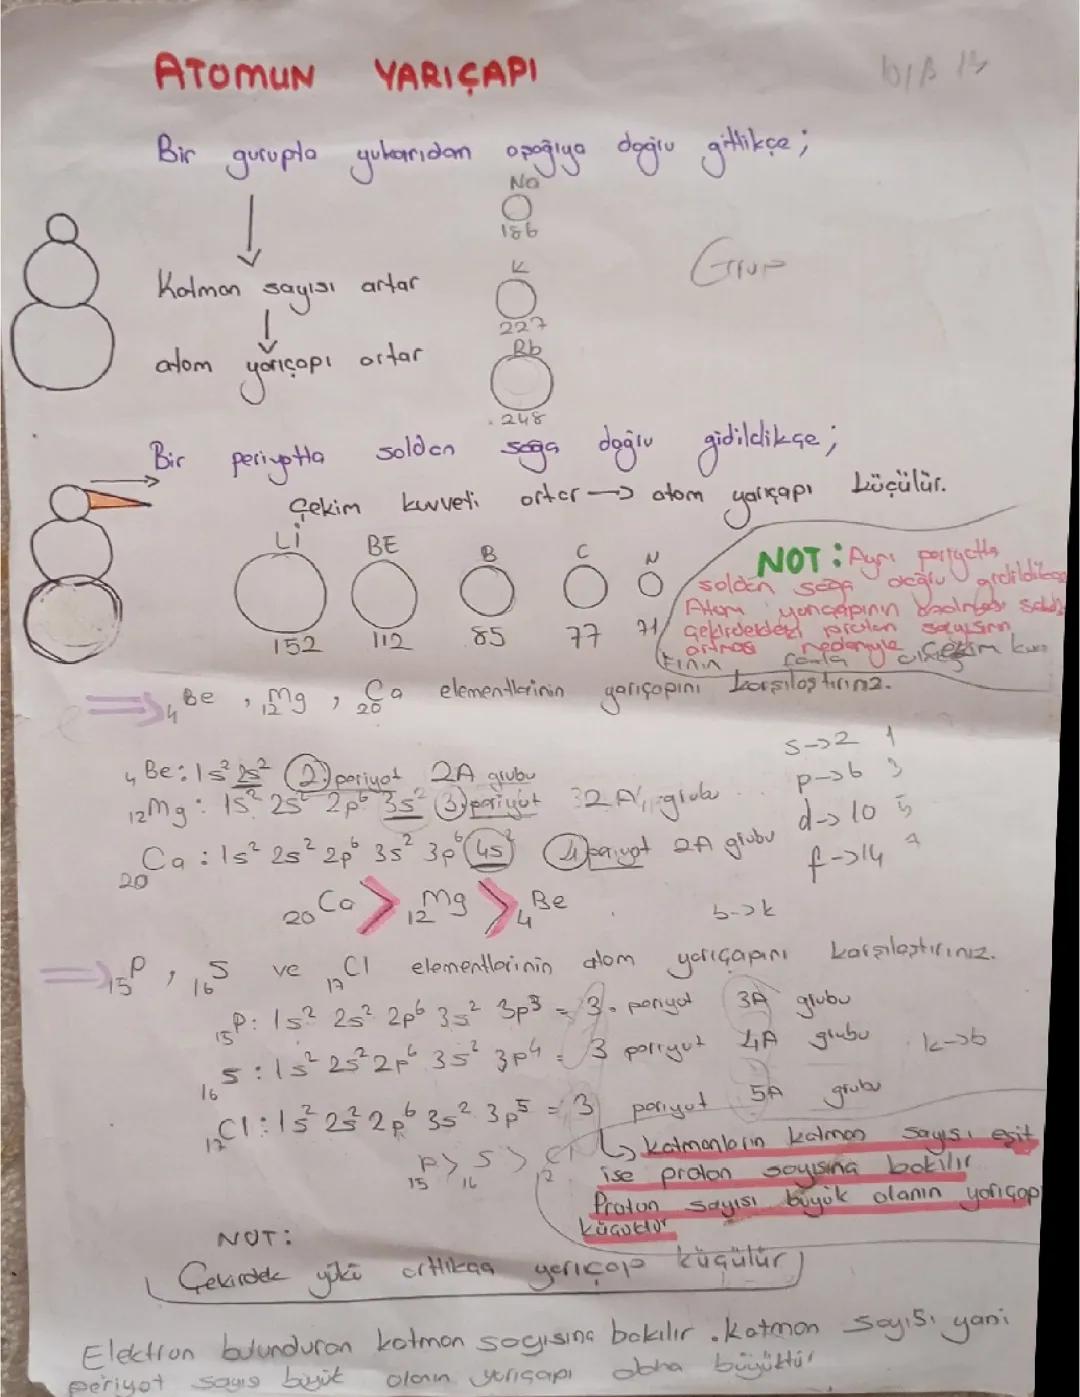 ATOMUN YARIÇAPI
Bir gurupta yukarıdan aşağıya doğru gittikçe;
Na
186
Katman sayısı artar
K
227
Grup
atom yarıçapı artar
Rb
248
Bir periyotta soldan sağa doğru gidildikçe;
Çekim kuvveti artar → atom yarıçapı küçülür.
Li BE B C N
152 112 85 77 71
NOT: Aynı periyotta
soldan sağa doğru gidildikçe
Atom yarıçapının azalması
çekirdekteki proton sayısının
artması nedeniyle çekim kuv
tinin fazla
₄Be, ₁₂Mg, ₂₀Ca elementlerinin yarıçapını karşılaştırınız.
s->2 1
₄Be: 1s² 2s² 2) periyot 2A grubu
p->6 3
₁₂Mg: 1s² 2s² 2p⁶ 3s² 3) periyot 2A grubu
d->10 5
₂₀Ca: 1s² 2s² 2p⁶ 3s² 3p⁶ 4s² 4) periyot 2A grubu
f->14 7
₂₀Ca > ₁₂Mg > ₄Be
b->k
₁₅P, ₁₆S ve ₁₇Cl elementlerinin atom yarıçapını karşılaştırınız.
₁₅P: 1s² 2s² 2p⁶ 3s² 3p³ = 3. periyot 3A grubu
₁₆S: 1s² 2s² 2p⁶ 3s² 3p⁴ = 3 periyot 4A grubu k->b
₁₇Cl: 1s² 2s² 2p⁶ 3s² 3p⁵ = 3 periyot 5A grubu
₁₅P > ₁₆S > Cl
↳ Katmanların katman sayısı eşit
ise proton sayısına bakılır
Proton sayısı büyük olanın yarıçap
küçüktür
NOT:
Çekirdek yükü arttıkça yarıçap küçülür
Elektron bulunduran katman sayısına bakılır. Katman sayısı yani
periyot sayıs büyük olanın yarıçapı daha büyüktür